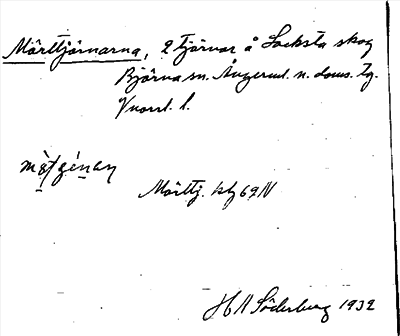 Mörttjärnarna, 2 tjärnar å Locksta skog
Björna sn. Ångerml. n. doms. tg.
Vnorrl. l.
Mörttj. kbl 69 N
H N Söderberg 1932